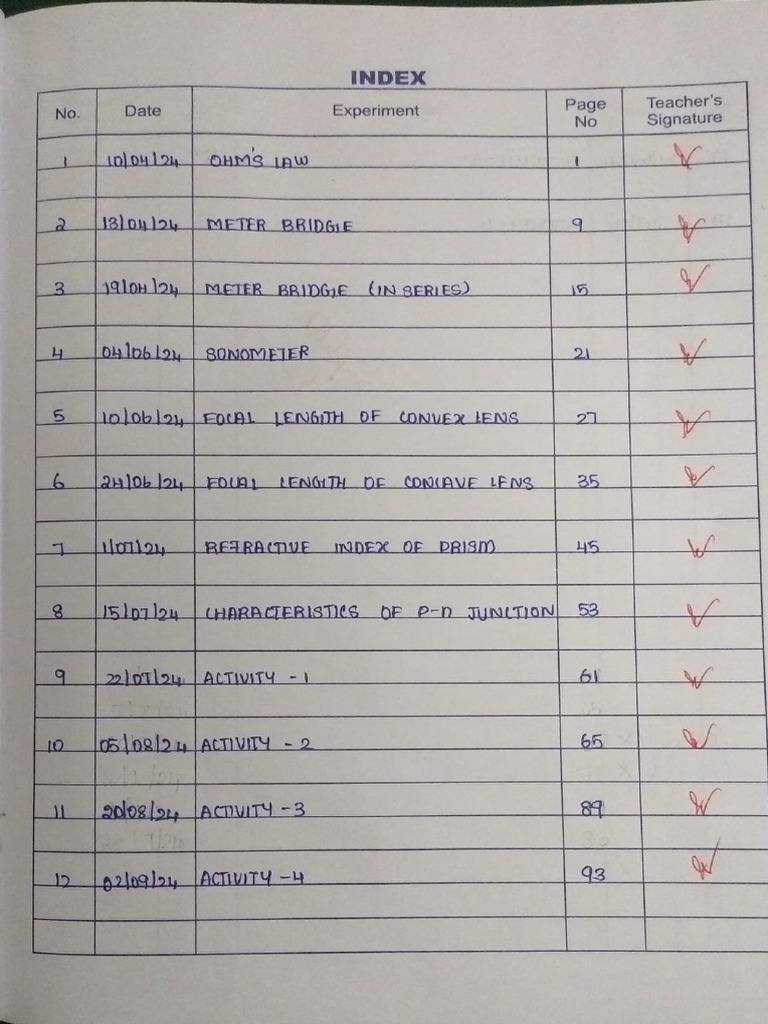 INDEX
No. Date Experiment Page No Teacher's Signature
1 10/04/24 OHM'S LAW 1
2 13/04/24 METER BRIDGE 9
3 19/04/24 METER BRIDGE (IN SERIES) 15
4 04/06/24 SONOMETER 21
5 10/06/24 FOCAL LENGTH OF CONVEX LENS 27
6 24/06/24 FOCAL LENGTH OF CONCAVE LENS 35
7 1/07/24 REFRACTIVE INDEX OF PRISM 45
8 15/07/24 CHARACTERISTICS OF P-n JUNCTION 53
9 22/07/24 ACTIVITY - 1 61
10 05/08/24 ACTIVITY - 2 65
11 20/08/24 ACTIVITY - 3 89
12 02/09/24 ACTIVITY - 4 93